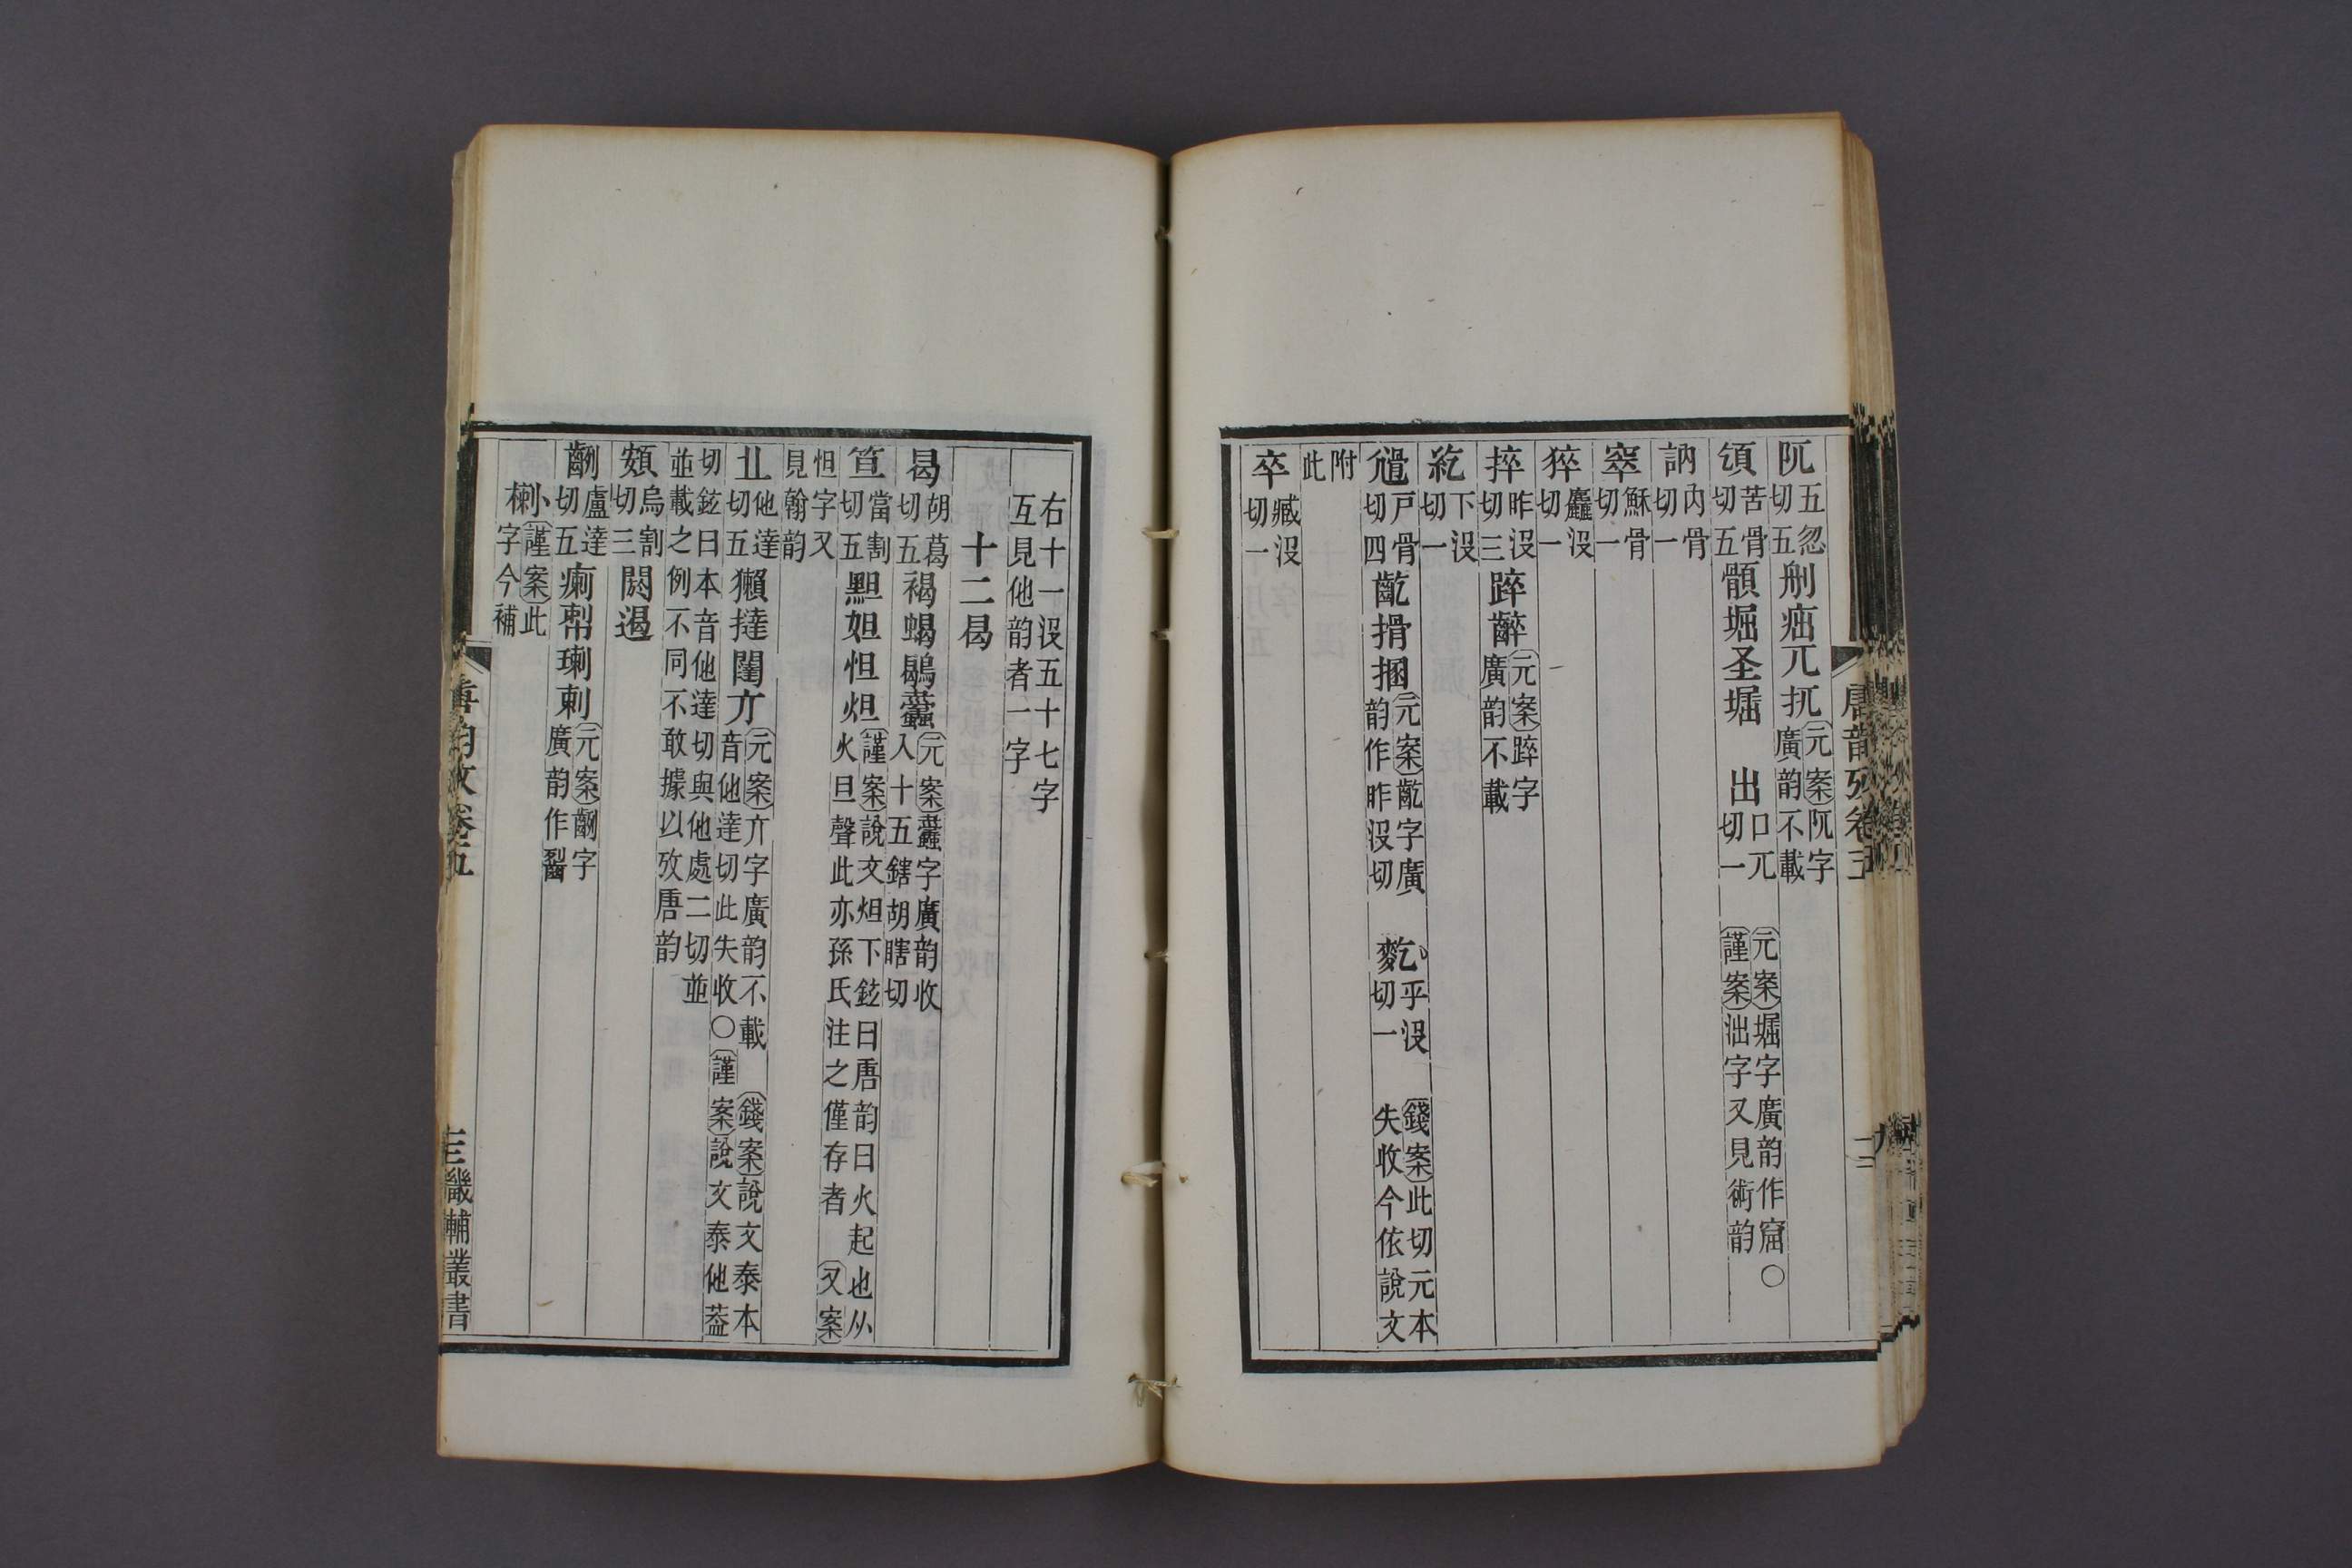 阢五忽切五刖㾶兀扤元案阢字廣韵不載
頝苦骨切五顝堀圣堀 出口兀切一 元案堀字廣韵作窟〇謹案泏字又見術韵
訥內骨切一
窣穌骨切一
猝麤沒切一
捽昨沒切三踤䶝元案踤字廣韵不載
紇下沒切一
䙡戸骨切四齕搰捆元案齕字廣韵作昨沒切 麧乎沒切一 錢案此切元本失收今依說文
附此
卒臧沒切一
唐韵攷卷五
右十一沒五十七字
互見他韵者一字
十二曷
曷胡葛切五褐蝎鶡䘊元案䘊字廣韵收入十五鎋胡瞎切
笪當割切五黕妲怛炟謹案說文炟下鉉曰唐韵曰火起也从火旦聲此亦孫氏注之僅存者 又案
怛字又見翰韵
㐀他達切五獺撻闥𠫓元案𠫓字廣韵不載音他達切此失收〇謹案說文泰他葢 錢案說文泰本
切鉉曰本音他達切與他處二切並並載之例不同不敢據以攷唐韵
頞烏割切三閼遏
䶛盧達切五瘌㓨瓎剌元案䶛字廣韵作䶛
㭧小謹案此字今補
唐韵攷卷五
畿輔叢書